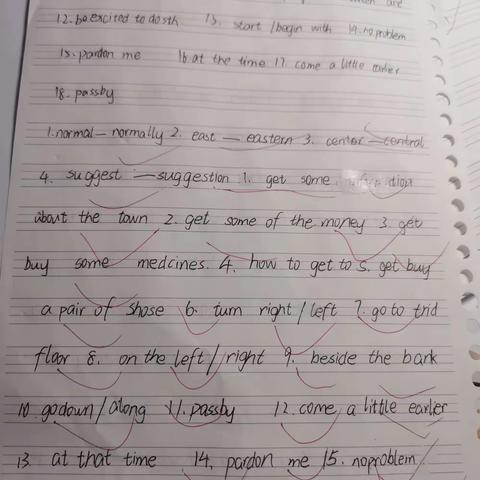 and
12. be excited to do sth. 13. start /begin with 14. no problem
15. pardon me 16. at the time 17. come a little earlier
18. passby
1. normal — normally 2. east — eastern 3. center — central
4. suggest — suggestion 1. get some
about the town 2. get some of the money 3. get
buy some medcines. 4. how to get to 5. get buy
a pair of shose 6. turn right / left 7. go to trid
floor 8. on the left / right 9. beside the bank
10. go down / along 11. passby 12. come a little earlier
13. at that time 14. pardon me 15. noproblem